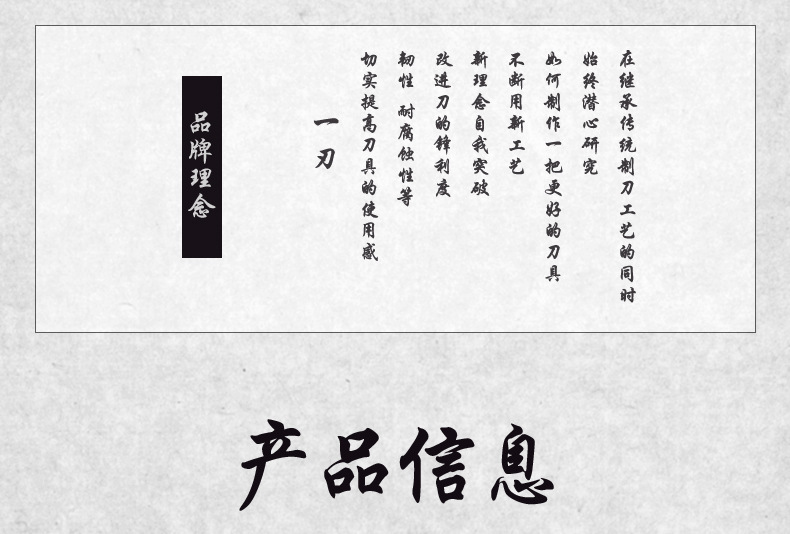 在继承传统制刀工艺的同时
始终潜心研究
如何制作一把更好的刀具
不断用新工艺
新理念自我突破
改进刀的锋利度
韧性 耐腐蚀性等
切实提高刀具的使用感
一刃
品牌理念
产品信息